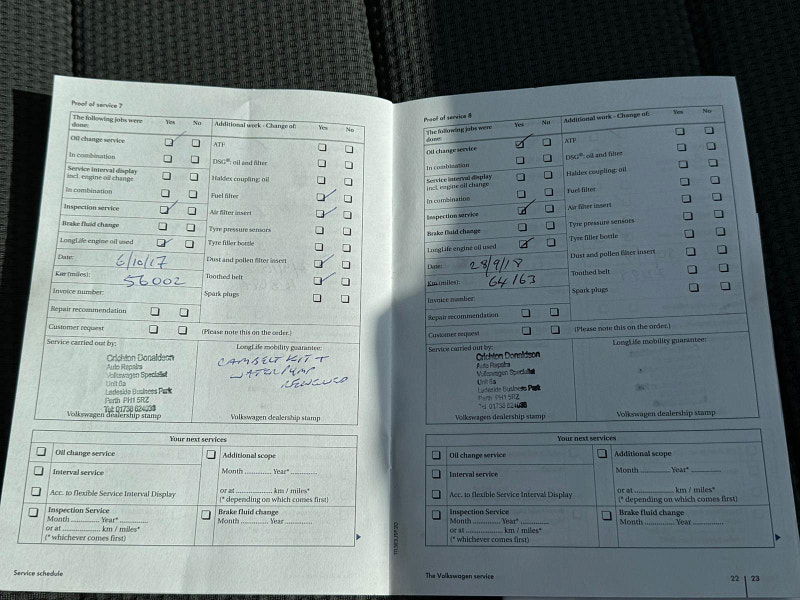 Proof of service 7
The following jobs were done:
Yes
No
Additional work - Change of:
Yes
No
Oil change service
In combination
Service interval display
incl. engine oil change
In combination
Inspection service
Brake fluid change
LongLife engine oil used
Date: 6/10/17
Km (miles): 56002
Invoice number:
Repair recommendation
Customer request
ATF
DSG®: oil and filter
Haldex coupling: oil
Fuel filter
Air filter insert
Tyre pressure sensors
Tyre filler bottle
Dust and pollen filter insert
Toothed belt
Spark plugs
(Please note this on the order.)
Service carried out by:
Crichton Donaldson
Auto Repairs
Volkswagen Specialist
Unit 6a
Ladeside Business Park
Perth PH1 5RZ
Tel: 01738 624038
Volkswagen dealership stamp
LongLife mobility guarantee:
CAMBELT KIT +
WATER PUMP
RENEWED
Volkswagen dealership stamp
Your next services
Oil change service
Interval service
Acc. to flexible Service Interval Display
Inspection Service
Month ............ Year* ............
or at ............ km / miles*
(* whichever comes first)
Additional scope
Month ............ Year* ............
or at ............ km / miles*
(* depending on which comes first)
Brake fluid change
Month ............ Year ............
Service schedule
Proof of service 8
The following jobs were done:
Yes
No
Additional work - Change of:
Yes
No
Oil change service
In combination
Service interval display
incl. engine oil change
In combination
Inspection service
Brake fluid change
LongLife engine oil used
Date: 28/9/18
Km (miles): 64163
Invoice number:
Repair recommendation
Customer request
ATF
DSG®: oil and filter
Haldex coupling: oil
Fuel filter
Air filter insert
Tyre pressure sensors
Tyre filler bottle
Dust and pollen filter insert
Toothed belt
Spark plugs
(Please note this on the order.)
Service carried out by:
Crichton Donaldson
Auto Repairs
Volkswagen Specialist
Unit 6a
Ladeside Business Park
Perth PH1 5RZ
Tel: 01738 624038
Volkswagen dealership stamp
LongLife mobility guarantee:
Volkswagen dealership stamp
Your next services
Oil change service
Interval service
Acc. to flexible Service Interval Display
Inspection Service
Month ............ Year* ............
or at ............ km / miles*
(* whichever comes first)
Additional scope
Month ............ Year* ............
or at ............ km / miles*
(* depending on which comes first)
Brake fluid change
Month ............ Year ............
The Volkswagen service
22 | 23